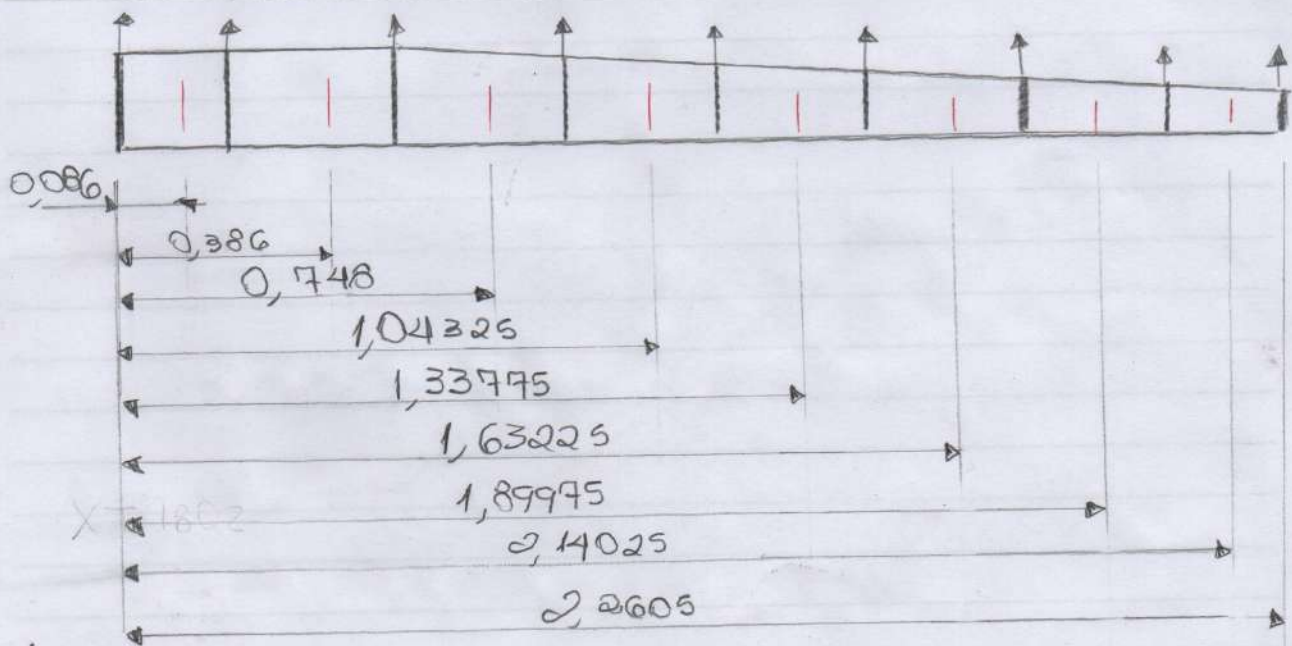 0,086
0,386
0,748
1,04325
1,33775
1,63225
1,89975
2,14025
2,2605